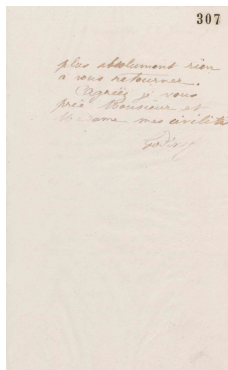 307
plus absolument rien
a vous retourner.
Agréez je vous
prie Monsieur et
Madame mes civilités
Godin